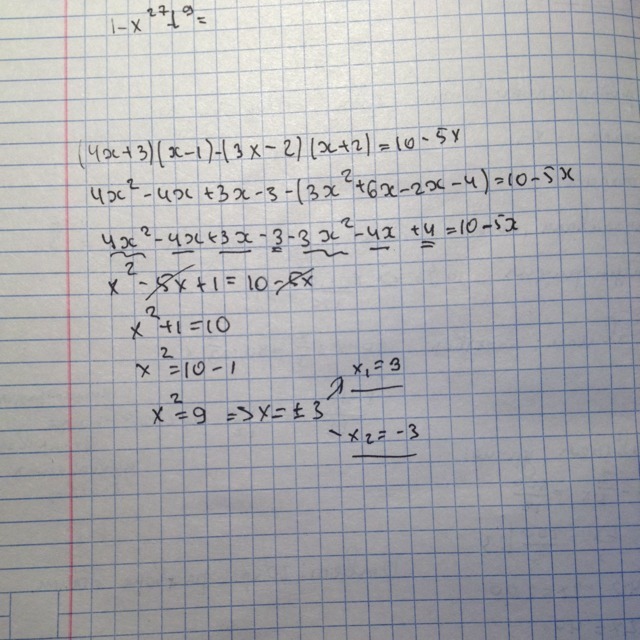 (4x+3)(x-1)-(3x-2)(x+2)=10-5x
4x²-4x+3x-3-(3x²+6x-2x-4)=10-5x
4x²-4x+3x-3-3x²-4x+4=10-5x
x²-5x+1=10-5x
x²+1=10
x²=10-1
x₁=3
x²=9 =>x=±3
x₂=-3